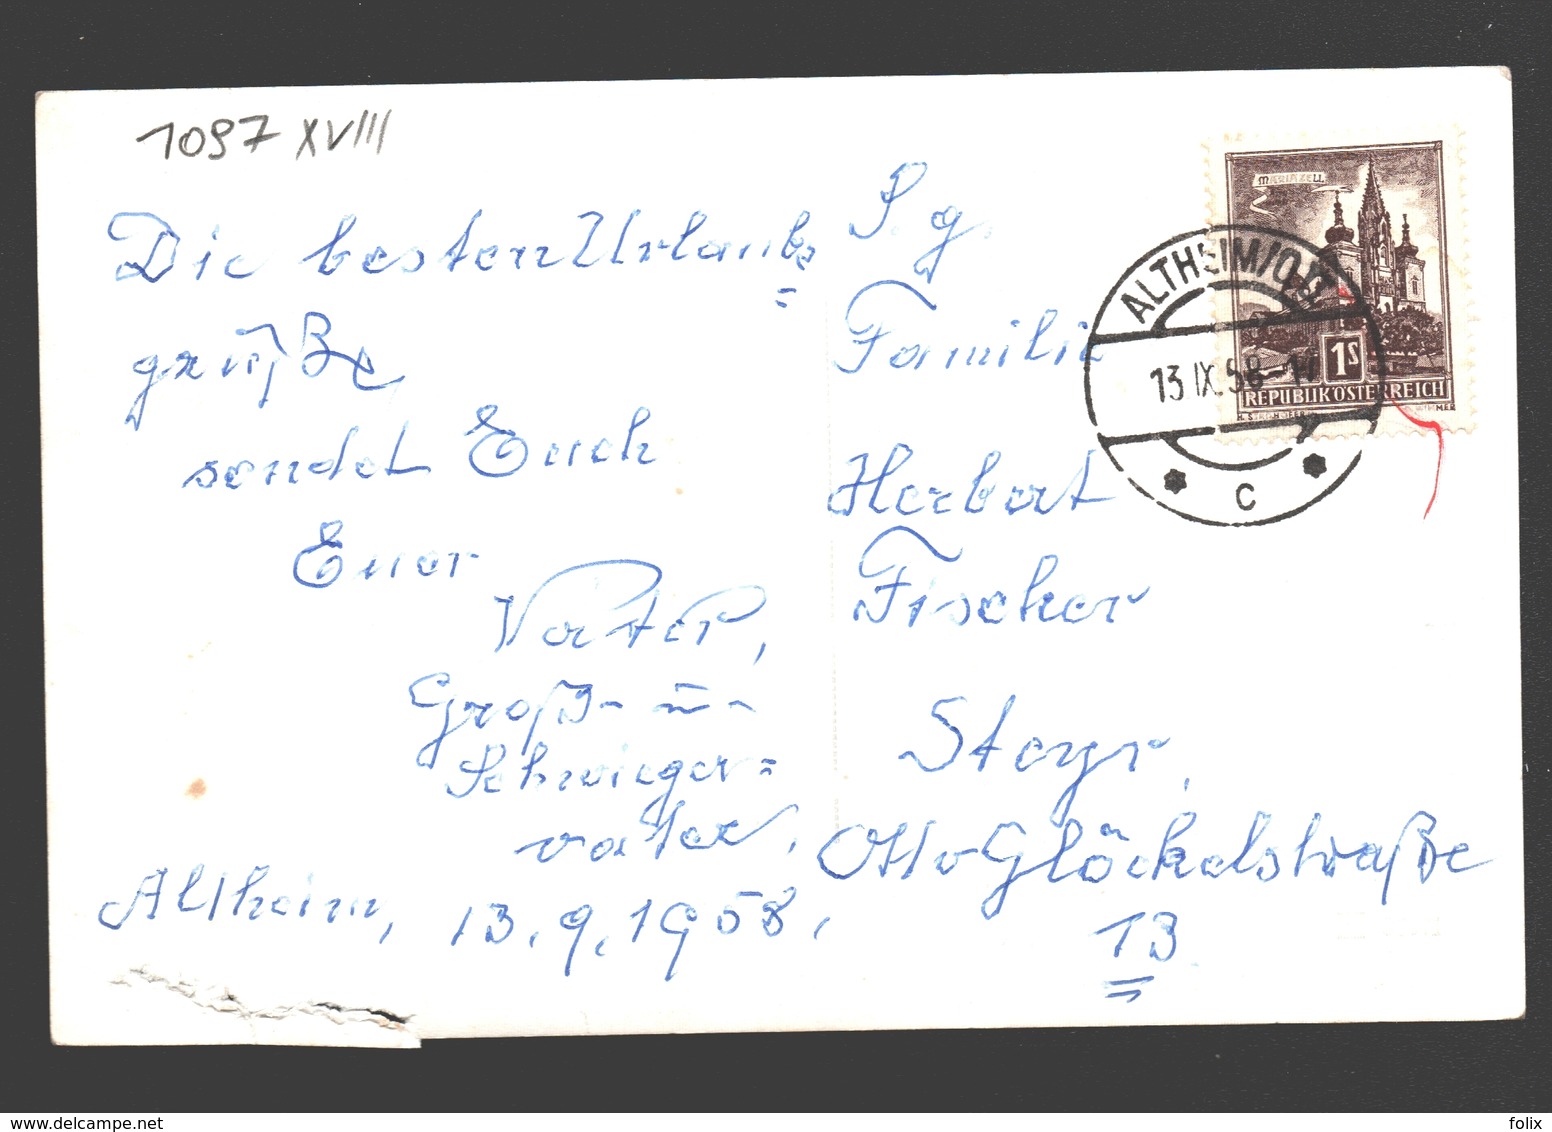 1097 XVIII
Die besten Urlaubs=
grüße
sendet Euch
Euer
Vater,
Groß- u -
Schwieger=
vater.
Altheim, 13.9.1958.
S. g.
Familie
Herbert
Fischer
Steyr,
Otto Glöckelstraße
13
MARIAZELL
1S
REPUBLIK ÖSTERREICH
ALTHEIM/O.Ö.
13. IX. 58
C
www.delcampe.net
folix